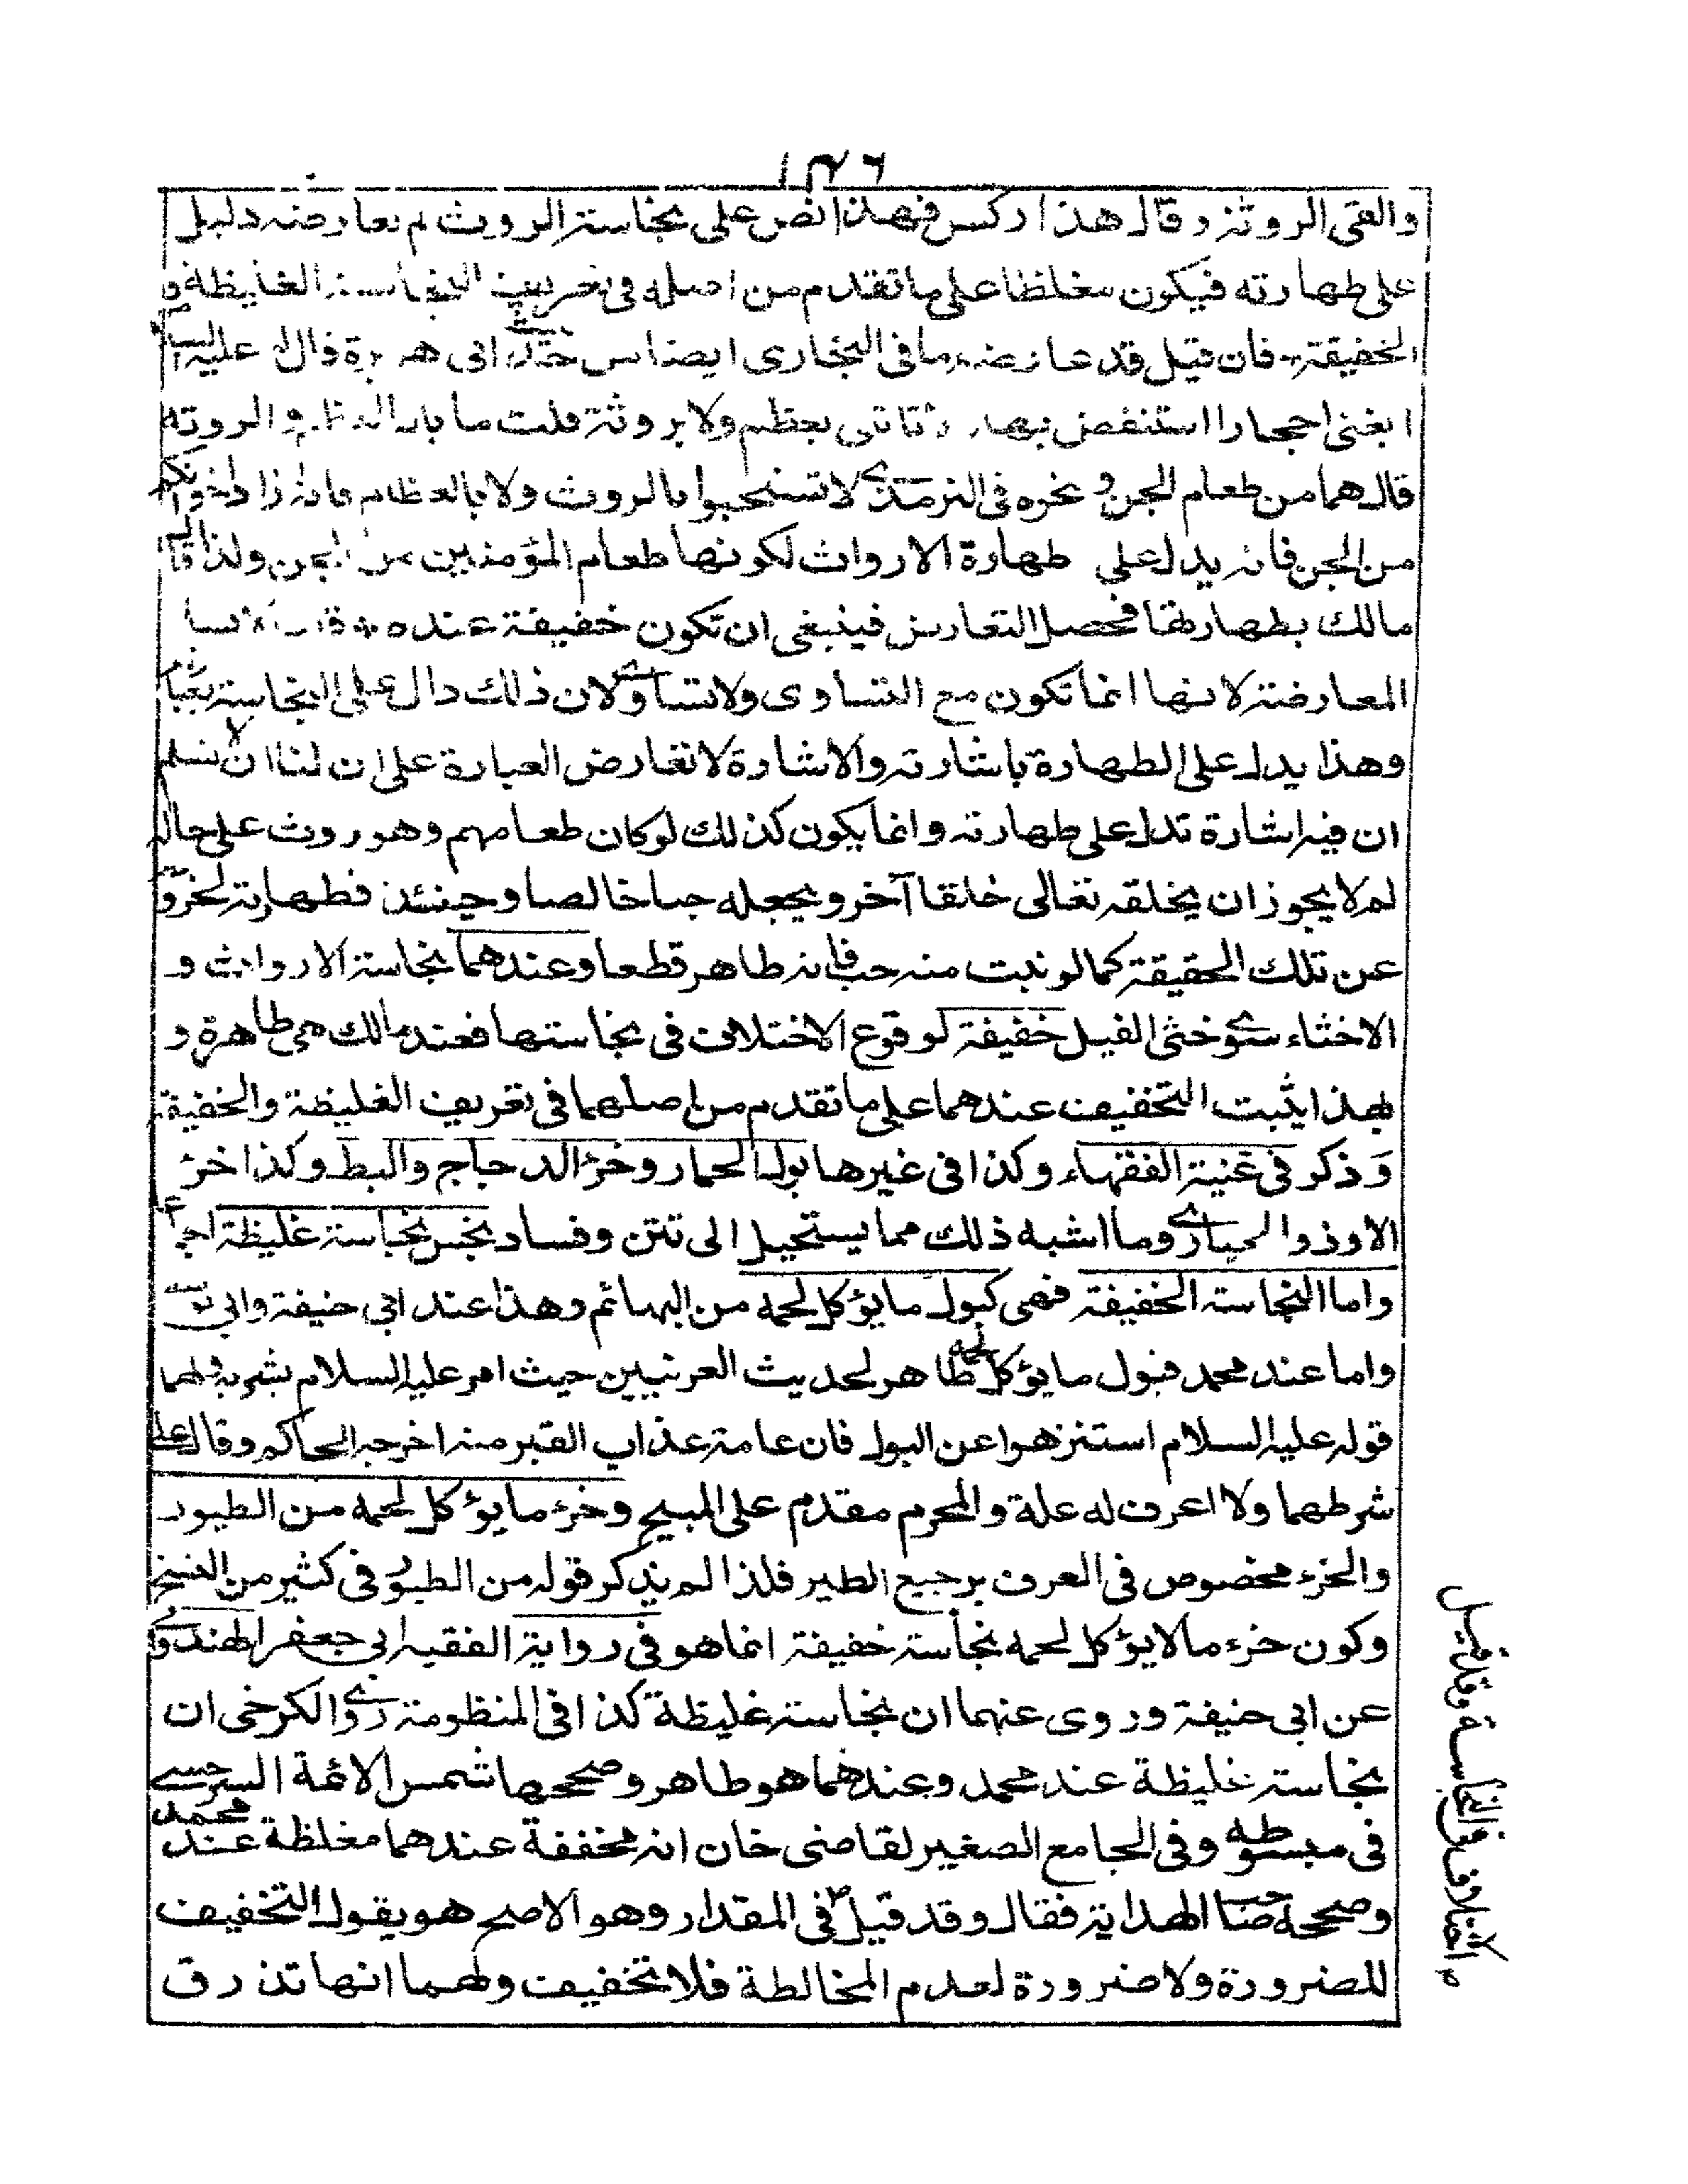 ١٤٦
والقى الروثة وقال هذا ركس فهذا نص على نجاسة الروث لم يعارضه دليل
على طهارته فيكون مغلظا على ما تقدم من اصله فى تعريف النجاسة الغليظة و
الخفيفة فان قيل قد عارضه ما فى البخارى ايضا من حديث ابى هريرة قال له عليه السلام
ابغنى احجارا استنفض بها ولا تاتنى بعظم ولا بروثة قلت ما بال العظام والروثة
قال هما من طعام الجن و نحوه فى الترمذى لا تستنجوا بالروث ولا بالعظام فانه زاد اخوانكم
من الجن فانه يدل على طهارة الارواث لكونها طعام المؤمنين من الجن ولذا قال
مالك بطهارتها فحصل التعارض فينبغى ان تكون خفيفة عنده
المعارضة لانها انما تكون مع التساوى ولا تساوى لان ذلك دال على النجاسة بعبارته
وهذا يدل على الطهارة باشارته والاشارة لا تعارض العبارة على ان لنا ان لا نسلم
ان فيه اشارة تدل على طهارته وانما يكون كذلك لو كان طعامهم وهو روث على حاله
لم لا يجوز ان يخلقه تعالى خلقا آخر ويجعله حبا خالصا وحينئذ فطهارته لخروجه
عن تلك الحقيقة كما لو نبت منه حب فانه طاهر قطعا وعندهما نجاسة الارواث و
الاخثاء سوى خثى الفيل خفيفة لوقوع الاختلاف فى نجاستها فعند مالك هى طاهرة و
بهذا يثبت التخفيف عندهما على ما تقدم من اصلهما فى تعريف الغليظة والخفيفة
وذكر فى غنية الفقهاء وكذا فى غيرها بول الحمار وخرؤ الدجاج والبط وكذا خرؤ
الاوز والحبارى وما اشبه ذلك مما يستحيل الى نتن وفساد نجس نجاسة غليظة
واما النجاسة الخفيفة فهى كبول ما يؤكل لحمه من البهائم وهذا عند ابى حنيفة وابى يوسف
واما عند محمد فبول ما يؤكل لحمه طاهر لحديث العرنيين حيث امر عليه السلام بشربه ولهما
قوله عليه السلام استنزهوا عن البول فان عامة عذاب القبر منه اخرجه الحاكم وقال على
شرطهما ولا اعرف له علة والمحرم مقدم على المبيح وخرؤ ما يؤكل لحمه من الطيور
والخرء مخصوص فى العرف برجيع الطير فلذا لم يذكر قوله من الطيور فى كثير من النسخ
وكون خرء ما لا يؤكل لحمه نجاسة خفيفة انما هو فى رواية الفقيه ابى جعفر الهندوانى
عن ابى حنيفة وروى عنهما ان نجاسته غليظة كذا فى المنظومة وروى الكرخى ان
نجاسته غليظة عند محمد وعندهما هو طاهر وصححها شمس الائمة السرخسى
فى مبسوطه وفى الجامع الصغير لقاضى خان انه مخففة عندهما مغلظة عند محمد
وصححه صاحب الهداية فقال وقد قيل فى المقدار وهو الاصح هو يقول التخفيف
للضرورة ولا ضرورة لعدم المخالطة فلا تخفيف ولهما انها تذرق
م الاختلاف فى النجاسة وقد قيل